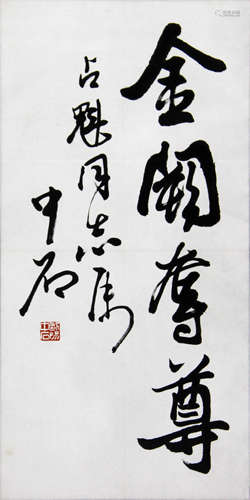 金闕奪尊
占魁同志属
中石